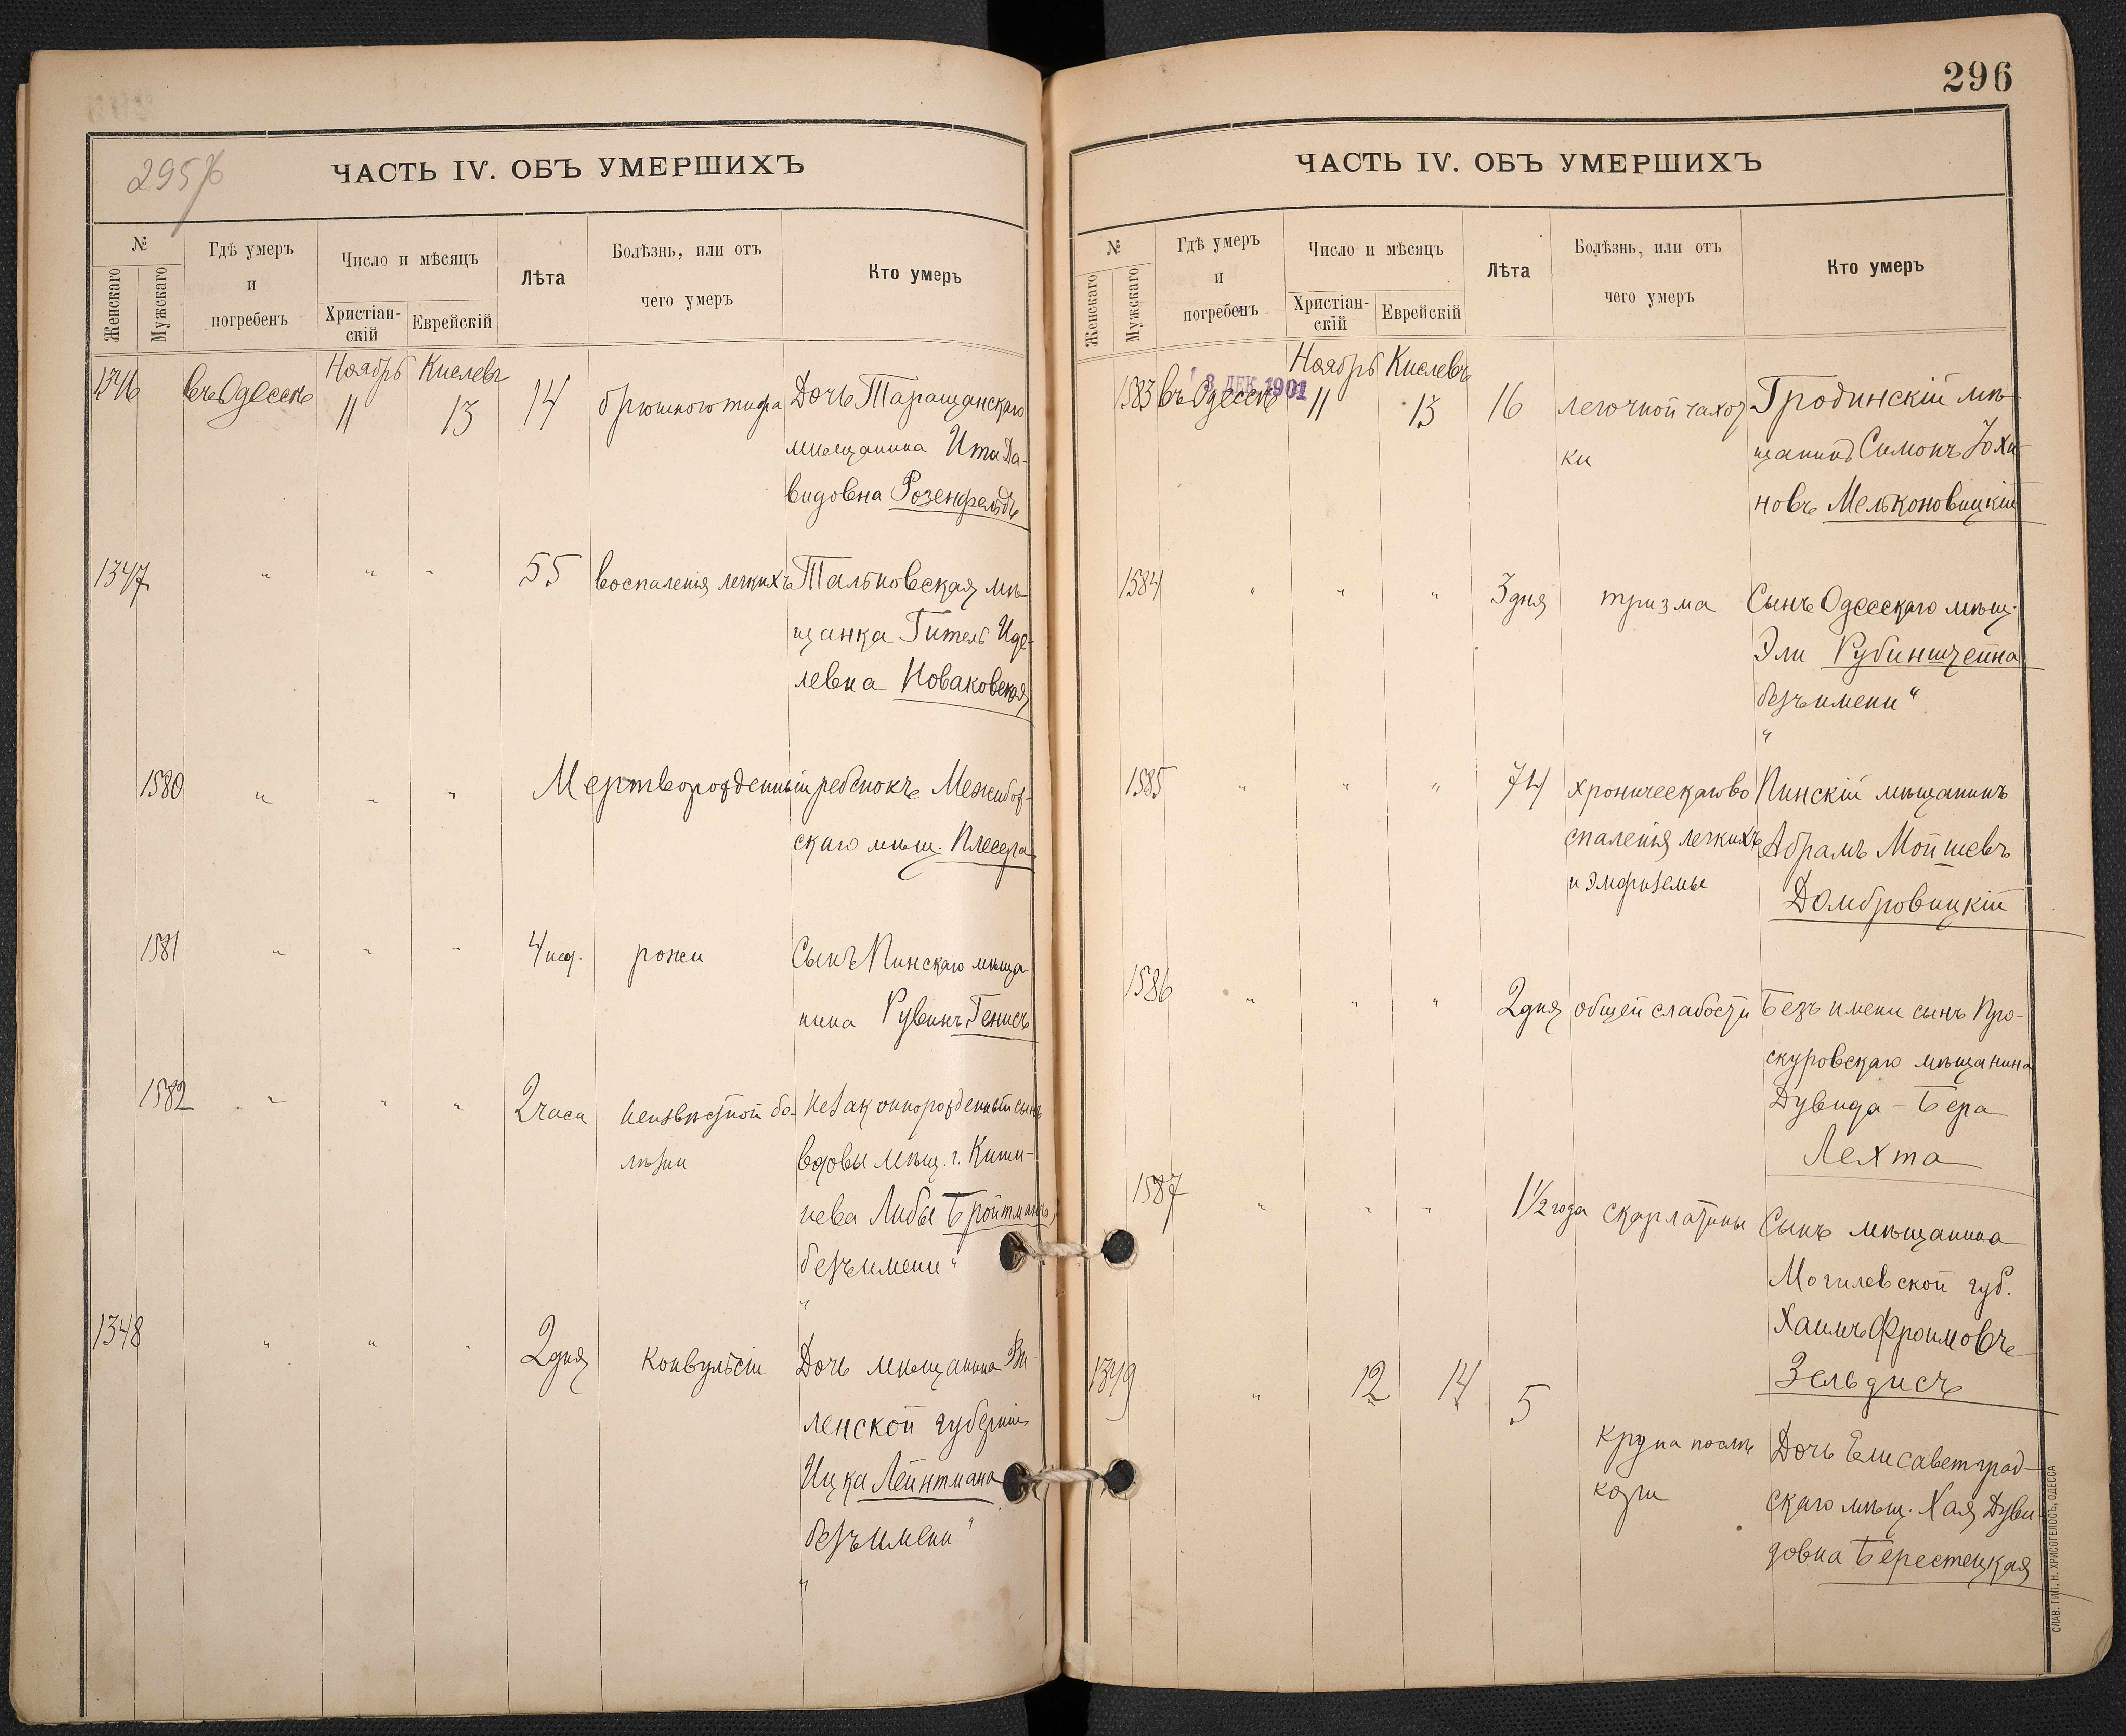 295 об
ЧАСТЬ IV. ОБЪ УМЕРШИХЪ
№
Женскаго
Мужскаго
Гдѣ умеръ
и
погребенъ
Число и мѣсяцъ
Христіан-
скій
Еврейскій
Лѣта
Болѣзнь, или отъ
чего умеръ
Кто умеръ
Ноябрь Кислевъ
1346 въ Одессѣ 11 13 14 брюшного тифа Дочь Таращанскаго
мѣщанина Ита Да-
видовна Розенфельдъ
1347 " " " 55 воспаленія легкихъ Тальновская мѣ-
щанка Гитель Иде-
левна Новаковская
1580 " " " Мертворожденный ребенокъ Межибож-
скаго мѣщ. Плесера
1581 " " " 4 нед. рожи Сынъ Пинскаго мѣща-
нина Рувинъ Генисъ
1582 " " " 2 часа неизвѣстной бо- Незаконнорожденный сынъ
лѣзни вдовы мѣщ. г. Киши-
нева Либы Бройтманъ,
безъ имени "
"
1348 " " " 2 дня конвульсіи Дочь мѣщанина Ви-
ленской губерніи
Ицка Лейнтмана
безъ имени "
"
296
ЧАСТЬ IV. ОБЪ УМЕРШИХЪ
№
Женскаго
Мужскаго
Гдѣ умеръ
и
погребенъ
Число и мѣсяцъ
Христіан-
скій
Еврейскій
Лѣта
Болѣзнь, или отъ
чего умеръ
Кто умеръ
Ноябрь Кислевъ
ДЕК 1901
1583 въ Одессѣ 11 13 16 легочной чахот- Гродинскій мѣ-
ки щанинъ Симонъ Юхи-
новъ Мельконовицкій
1584 " " " 3 дня тризма Сынъ Одесскаго мѣщ.
Эли Рубинштейна
безъ имени "
"
1585 " " " 74 хроническаго во Пинскій мѣщанинъ
спаленія легкихъ Абрамъ Мойшевъ
и эмфиземы Домбровицкій
1586 " " " 2 дня общей слабости Безъ имени сынъ Про-
скуровскаго мѣщанина
Дувида-Бера
Лехта
1587 " " " 1 1/2 года скарлатины Сынъ мѣщанина
Могилевской губ.
Хаимъ Фроимовъ
Зельдисъ
1349 " 12 14 5
крупа послѣ Дочь Елисаветград-
кори скаго мѣщ. Хая Дуви-
довна Берестецкая
СЛАВ. ТИП. Н. ХРИСОГЕЛОСЪ, ОДЕССА